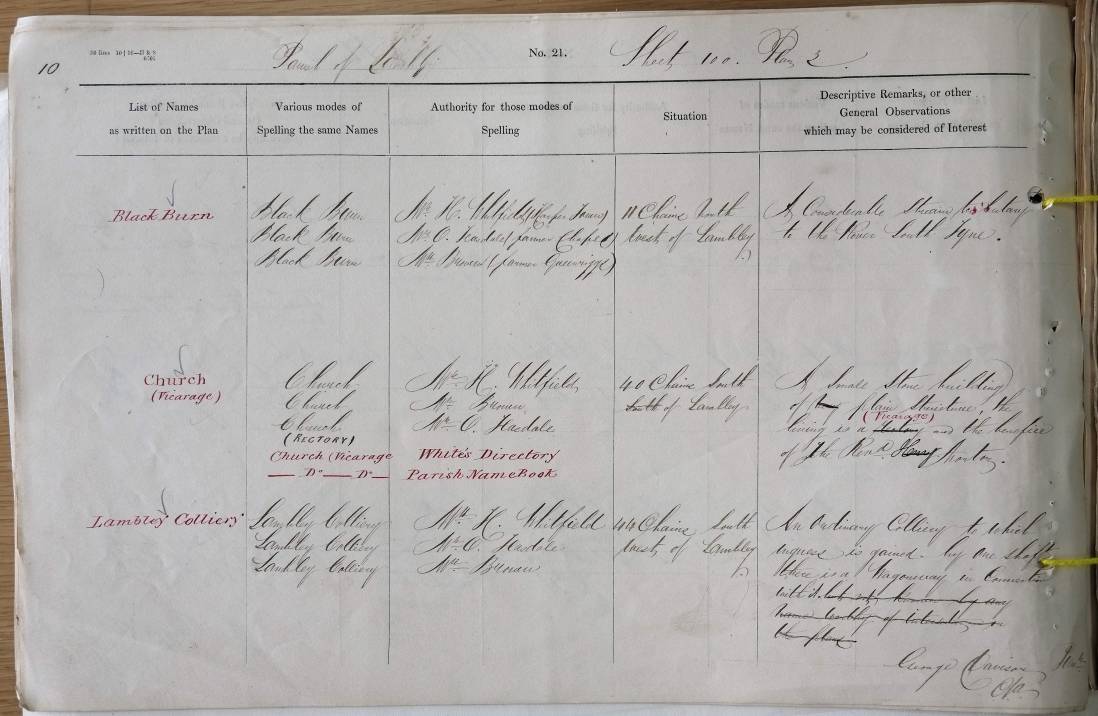 10
Parish of Lambley
No. 21.
Sheet 100. Plan 2
List of Names
as written on the Plan
Various modes of
Spelling the same Names
Authority for those modes of
Spelling
Situation
Descriptive Remarks, or other
General Observations
which may be considered of Interest
Black Burn
Black Burn
Black Burn
Black Burn
Mr. H. Whitfield (Harper Town)
Mr. O. Teasdale (farmer Chapel)
Mr. Brown (farmer)
11 Chains South
West of Lambley
A Considerable Stream tributary
to the River South Tyne.
Church
(Vicarage)
Church
Church
Church
(RECTORY)
Church (Vicarage
— Do — Do —
Mr. H. Whitfield
Mr. Brown
Mr. O. Teasdale
White's Directory
Parish Name Book
40 Chains South
South of Lambley
A Small Stone building
of plain structure, the
(Vicarage)
living is a Rectory and the benefice
of The Revd. Henry
Lambley Colliery
Lambley Colliery
Lambley Colliery
Lambley Colliery
Mr. H. Whitfield
Mr. O. Teasdale
Mr. Brown
44 Chains South
West of Lambley
An Ordinary Colliery to which
ingress is gained by one shaft
there is a Waggonway in Connection
with it but not known by any
name worthy of insertion on
the plan
George Davison